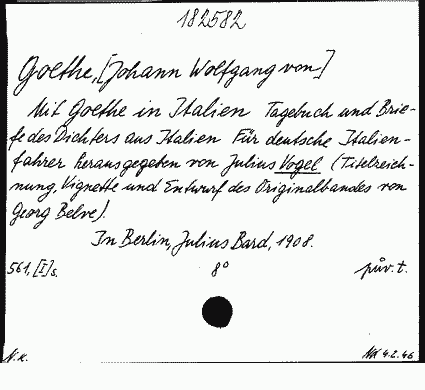 182582
Goethe, [Johann Wolfgang von]
Mit Goethe in Italien Tagebuch und Brie-
fe des Dichters aus Italien Für deutsche Italien-
fahrer herausgegeben von Julius Vogel (Titelzeich-
nung, Vignette und Entwurf des Originalbandes von
Georg Belwe).
In Berlin, Julius Bard, 1908.
561, [I] s. 8° pův. t.
N.K. NK 4.2.46